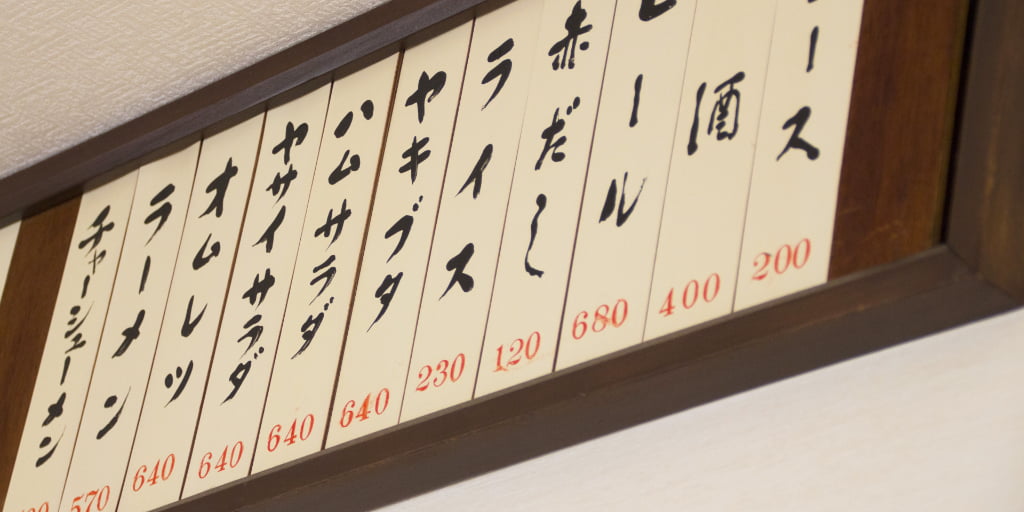 ース
200
酒
400
ール
680
赤だし
120
ライス
230
ヤキブタ
640
ハムサラダ
640
ヤサイサラダ
640
オムレツ
640
ラーメン
570
チャーシューメン